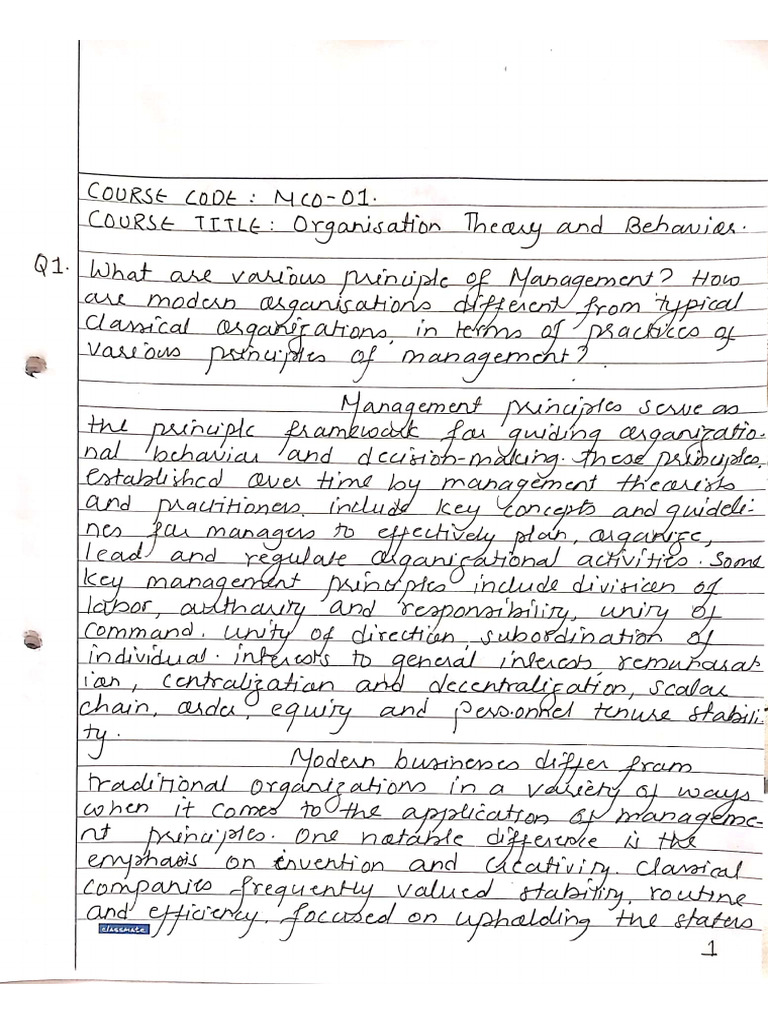 COURSE CODE : MCO-01.
COURSE TITLE: Organisation Theory and Behavior.
Q1. What are various principle of Management? How
are modern organisations different from typical
classical organizations, in terms of practices of
various principles of management?
Management principles serve as
the principle framework for guiding organizatio-
nal behavior and decision-making. These principles,
established over time by management theorists
and practitioners, include key concepts and guideli-
nes for managers to effectively plan, organize,
lead and regulate organisational activities. Some
key management principles include division of
labor, authority and responsibility, unity of
command, unity of direction, subordination of
individual interests to general interests, remunarat
ion, centralization and decentralization, scalar
chain, order, equity and personnel tenure stabili
ty.
Modern businesses differ from
traditional organizations in a variety of ways
when it comes to the application of manageme-
nt principles. One notable difference is the
emphasis on invention and creativity. Classical
companies frequently valued stability, routine
and efficiency, focused on upholding the status
classmate
1